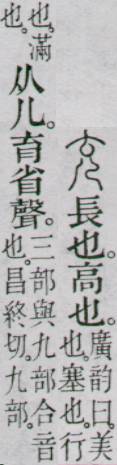 長也。高也。
廣韵曰。美
也。塞也。行
也。滿
也。
从儿。育省聲。
三部與九部合音
也。昌終切。九部。